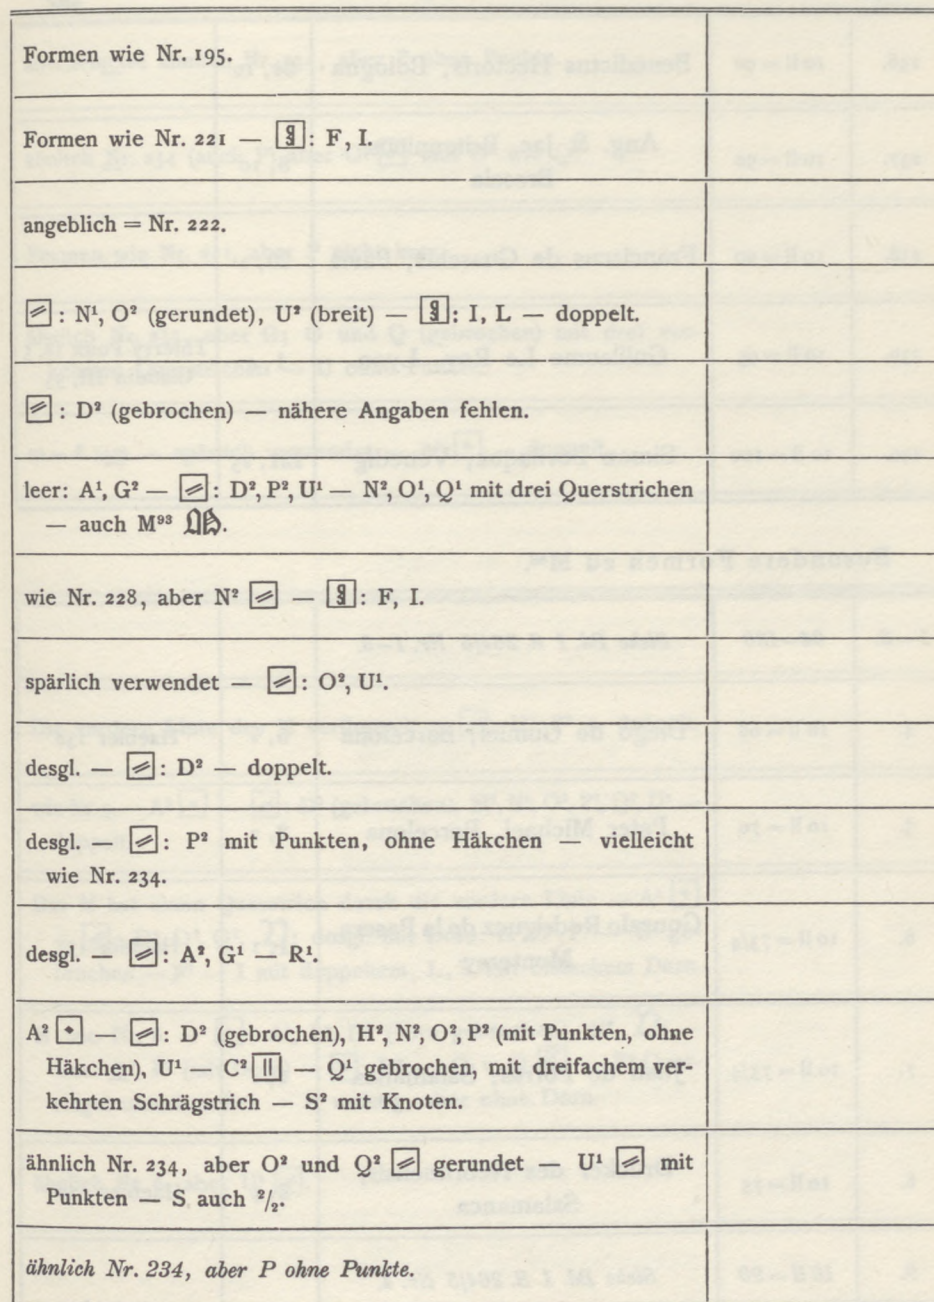 Formen wie Nr. 195.
Formen wie Nr. 221 — : F, I.
angeblich = Nr. 222.
: N¹, O² (gerundet), U² (breit) — : I, L — doppelt.
: D² (gebrochen) — nähere Angaben fehlen.
leer: A¹, G² — : D², P², U¹ — N², O¹, Q¹ mit drei Querstrichen
— auch M⁹³
wie Nr. 228, aber N² — : F, I.
spärlich verwendet — : O², U¹.
desgl. — : D² — doppelt.
desgl. — : P² mit Punkten, ohne Häkchen — vielleicht
wie Nr. 234.
desgl. — : A², G¹ — R¹.
A² — : D² (gebrochen), H², N², O², P² (mit Punkten, ohne
Häkchen), U¹ — C² — Q¹ gebrochen, mit dreifachem ver-
kehrten Schrägstrich — S² mit Knoten.
ähnlich Nr. 234, aber O² und Q² gerundet — U¹ mit
Punkten — S auch ²/₂.
ähnlich Nr. 234, aber P ohne Punkte.